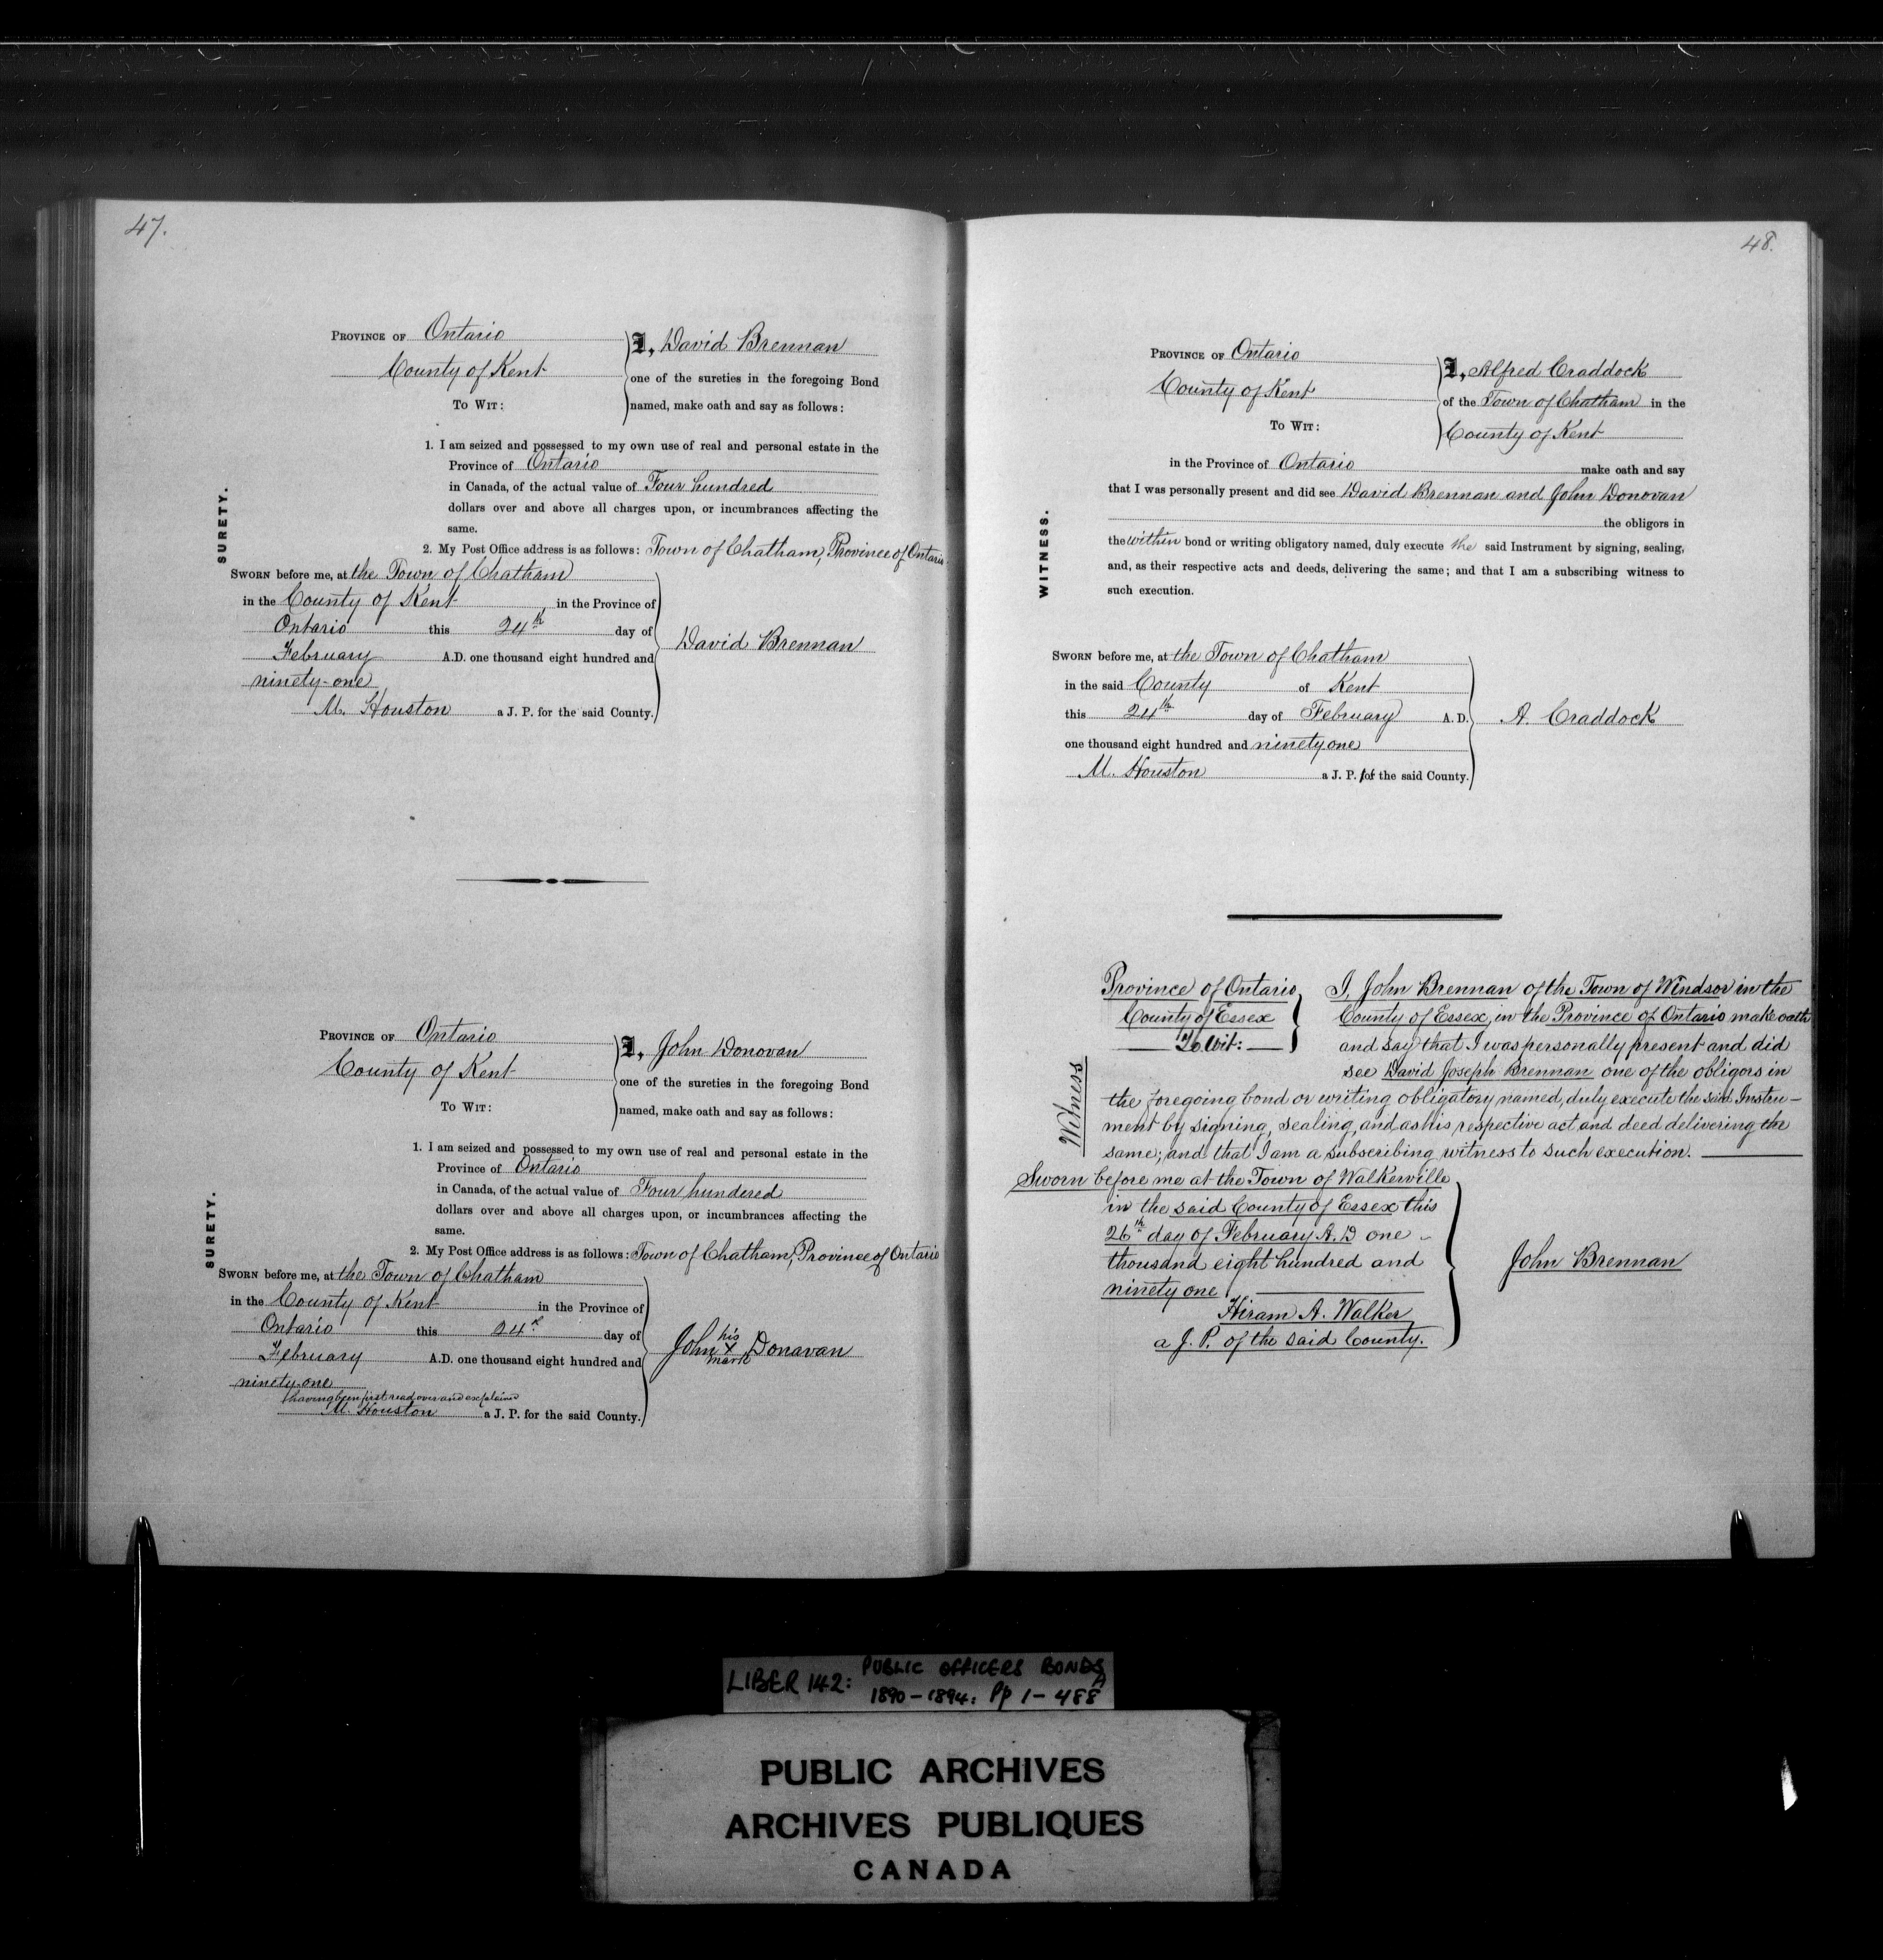 47.
PROVINCE OF Ontario
County of Kent
TO WIT:
I, David Brennan
one of the sureties in the foregoing Bond
named, make oath and say as follows:
SURETY.
1. I am seized and possessed to my own use of real and personal estate in the
Province of Ontario
in Canada, of the actual value of Four hundred
dollars over and above all charges upon, or incumbrances affecting the
same.
2. My Post Office address is as follows: Town of Chatham, Province of Ontario
SWORN before me, at the Town of Chatham
in the County of Kent in the Province of
Ontario this 24th day of
February A.D. one thousand eight hundred and
ninety-one
M. Houston a J. P. for the said County.
David Brennan
PROVINCE OF Ontario
County of Kent
TO WIT:
I, John Donovan
one of the sureties in the foregoing Bond
named, make oath and say as follows:
SURETY.
1. I am seized and possessed to my own use of real and personal estate in the
Province of Ontario
in Canada, of the actual value of Four hundered
dollars over and above all charges upon, or incumbrances affecting the
same.
2. My Post Office address is as follows: Town of Chatham, Province of Ontario
SWORN before me, at the Town of Chatham
in the County of Kent in the Province of
Ontario this 24th day of
February A.D. one thousand eight hundred and
ninety-one
having been first read over and explained
M. Houston a J. P. for the said County.
his
John X Donavan
mark
48.
PROVINCE OF Ontario
County of Kent
TO WIT:
I, Alfred Craddock
of the Town of Chatham in the
County of Kent
WITNESS.
in the Province of Ontario make oath and say
that I was personally present and did see David Brennan and John Donovan
the obligors in
the within bond or writing obligatory named, duly execute the said Instrument by signing, sealing,
and, as their respective acts and deeds, delivering the same; and that I am a subscribing witness to
such execution.
SWORN before me, at the Town of Chatham
in the said County of Kent
this 24th day of February A. D.
one thousand eight hundred and ninety one
M. Houston a J. P. for the said County.
A. Craddock
Province of Ontario
County of Essex
To Wit:
I, John Brennan of the Town of Windsor in the
County of Essex, in the Province of Ontario make oath
and say that I was personally present and did
see David Joseph Brennan one of the obligors in
Witness
the foregoing bond or writing obligatory named, duly execute the said Instru-
ment by signing, sealing, and as his respective act and deed delivering the
same; and that I am a subscribing witness to such execution.
Sworn before me at the Town of Walkerville
in the said County of Essex this
26th day of February A.D one
thousand eight hundred and
ninety one
Hiram A. Walker
a J. P. of the said County.
John Brennan
LIBER 142: PUBLIC OFFICERS BONDS
1890-1894: Pp 1-488A
PUBLIC ARCHIVES
ARCHIVES PUBLIQUES
CANADA